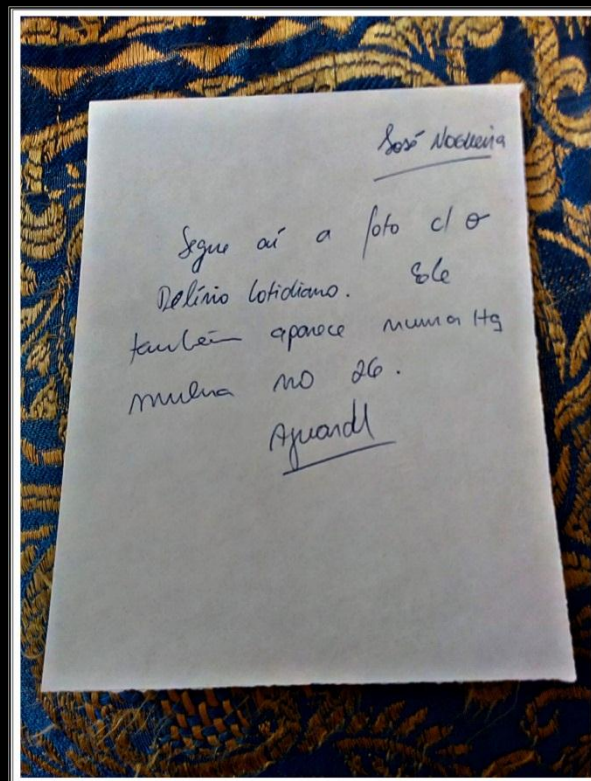 José Nogueira
Segue aí a foto c/ o
Delírio Cotidiano. Ele
também aparece numa HQ
minha no 26.
Aguarde